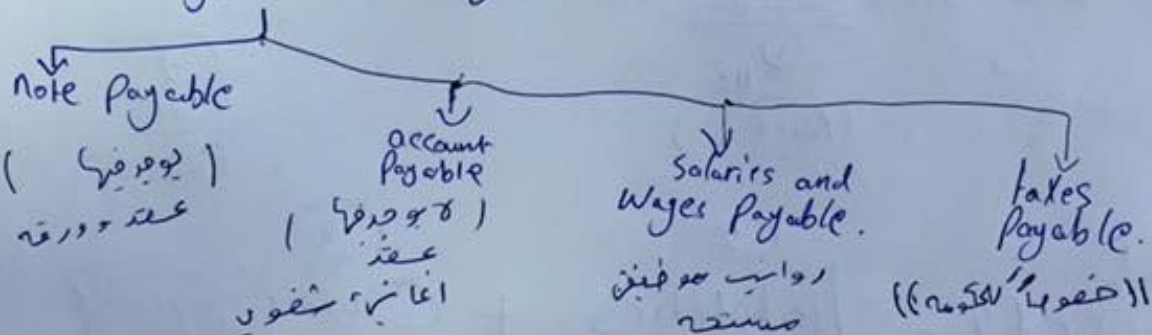 note Payable
( يوجد فيها )
عقد و ورقه
account
Payable
( لا يوجد فيها )
عقد
شفوي
Salaries and
Wages Payable.
رواتب موظفين
مستحقه
taxes
Payable.
((خصوصاً الحكومه))